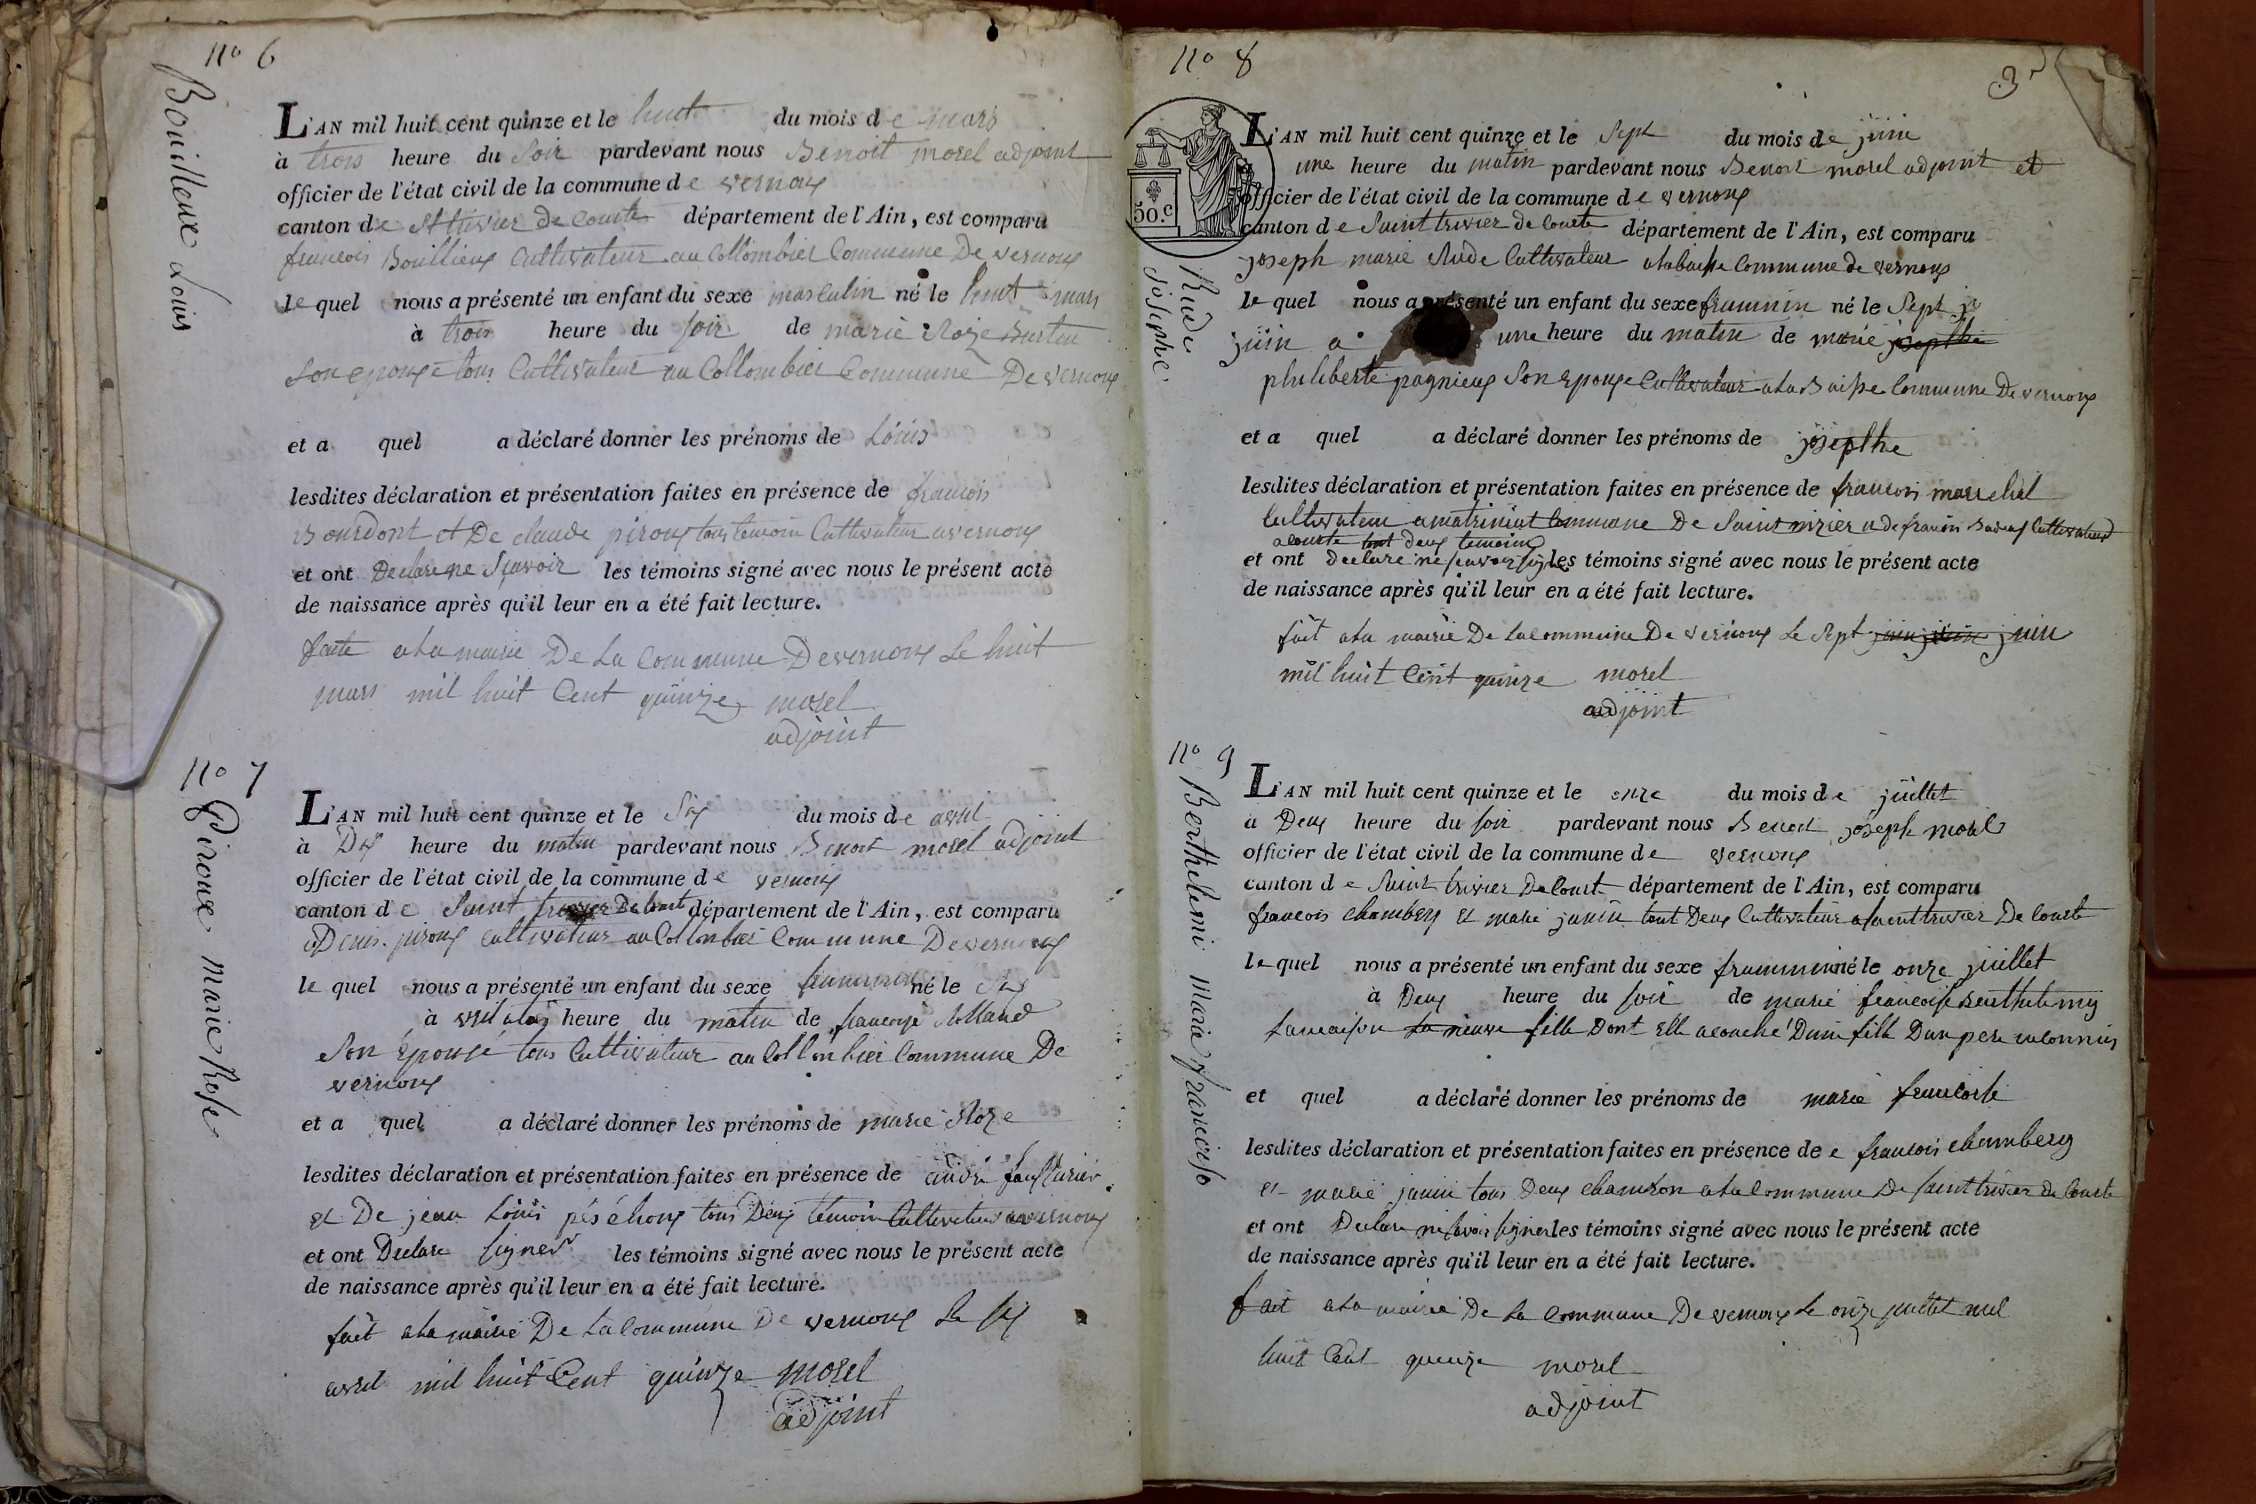 no 6
Bouilleux Louis
L'AN mil huit cent quinze et le huit du mois de mars
à trois heure du Soir pardevant nous Benoit morel adjoint
officier de l'état civil de la commune de vernoux
canton de St trivier De Courte département de l'Ain, est comparu
francois Bouillieux Cultivateur au Collombier Commune De vernoux
le quel nous a présenté un enfant du sexe masculin né le huit mars
à trois heure du soir de marie Roze
Son epouse tous Cultivateur au Collombier Commune De vernoux
et a quel a déclaré donner les prénoms de Loüis
lesdites déclaration et présentation faites en présence de francois
Bourdont et De claude piroux tous temoin Cultivateur a vernoux
et ont Declare ne Sçavoir les témoins signé avec nous le présent acte
de naissance après qu'il leur en a été fait lecture.
faite a la mairie De La Commune De vernoux Le huit
mars mil huit Cent quinze morel
adjoint
no 7
Piroux marie Rose
L'AN mil huit cent quinze et le Six du mois de avril
à Dix heure du matin pardevant nous Benoit morel adjoint
officier de l'état civil de la commune de vernoux
canton de Saint trivier De Court département de l'Ain, est comparu
Denis piroux cultivateur au Collonbier Commune De vernoux
le quel nous a présenté un enfant du sexe né le Six
à avril heure du matin de francoise Rolland
Son Epouse tous Cultivateur au Collonbier Commune De
vernoux
et a quel a déclaré donner les prénoms de marie Roze
lesdites déclaration et présentation faites en présence de andré
et De jean Loüis tous Deux temoin Cultivateur a vernoux
et ont Declare signer les témoins signé avec nous le présent acte
de naissance après qu'il leur en a été fait lecture.
fait a la mairie De La Commune De vernoux Le six
avril mil huit Cent quinze morel
adjoint
no 8
3
50.c
Rude josephe
L'AN mil huit cent quinze et le Sept du mois de juin
une heure du matin pardevant nous Benoit morel adjoint et
officier de l'état civil de la commune de vernoux
canton de Saint trivier de Courte département de l'Ain, est comparu
joseph marie Rude Cultivateur a la baisse Commune de vernoux
le quel nous a présenté un enfant du sexe né le Sept
juin a une heure du matin de marie josepthe
philiberte pagnieux Son epouse Cultivateur a la Baisse Commune De vernoux
et a quel a déclaré donner les prénoms de josepthe
lesdites déclaration et présentation faites en présence de francois
Cultivateur Commune De Saint nizier
a courte tout deux temoins
et ont declare ne les témoins signé avec nous le présent acte
de naissance après qu'il leur en a été fait lecture.
fait a la mairie De la commune De vernoux Le Sept juin
mil huit Cent quinze morel
adjoint
no 9
Berthelemi Marie francoise
L'AN mil huit cent quinze et le onze du mois de juillet
à Deux heure du soir pardevant nous Benoit joseph morel
officier de l'état civil de la commune de vernoux
canton de Saint trivier De Court département de l'Ain, est comparu
francois chambery et marie janin tout Deux Cultivateur a saint trivier De Courte
le quel nous a présenté un enfant du sexe né le onze juillet
à Deux heure du soir de marie francoise
fille Dont Elle a couché D'une fille D'un pere inconnus
et quel a déclaré donner les prénoms de marie francoise
lesdites déclaration et présentation faites en présence de francois chambery
et marie janin tous Deux a la Commune De saint trivier de Courte
et ont Declare ne savoir signer les témoins signé avec nous le présent acte
de naissance après qu'il leur en a été fait lecture.
fait a la mairie De La Commune De vernoux Le onze juillet mil
huit Cent quinze morel
adjoint